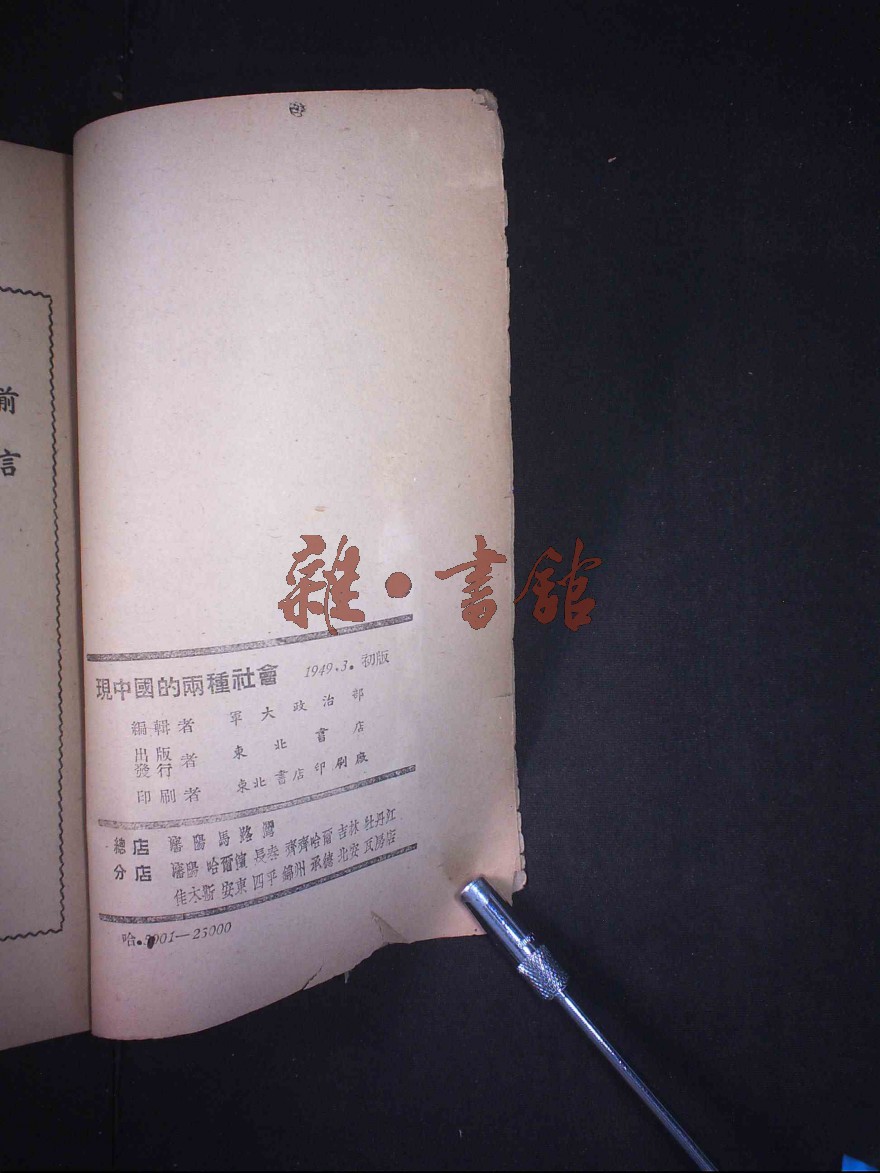 前言
雜·書館
現中國的兩種社會 1949.3.初版
編輯者 軍大政治部
出版
發行者 東北書店
印刷者 東北書店印刷廠
總店 瀋陽馬路灣
分店 瀋陽 哈爾濱 長春 齊齊哈爾 吉林 牡丹江
佳木斯 安東 四平 錦州 承德 北安 瓦房店
哈.5001—25000